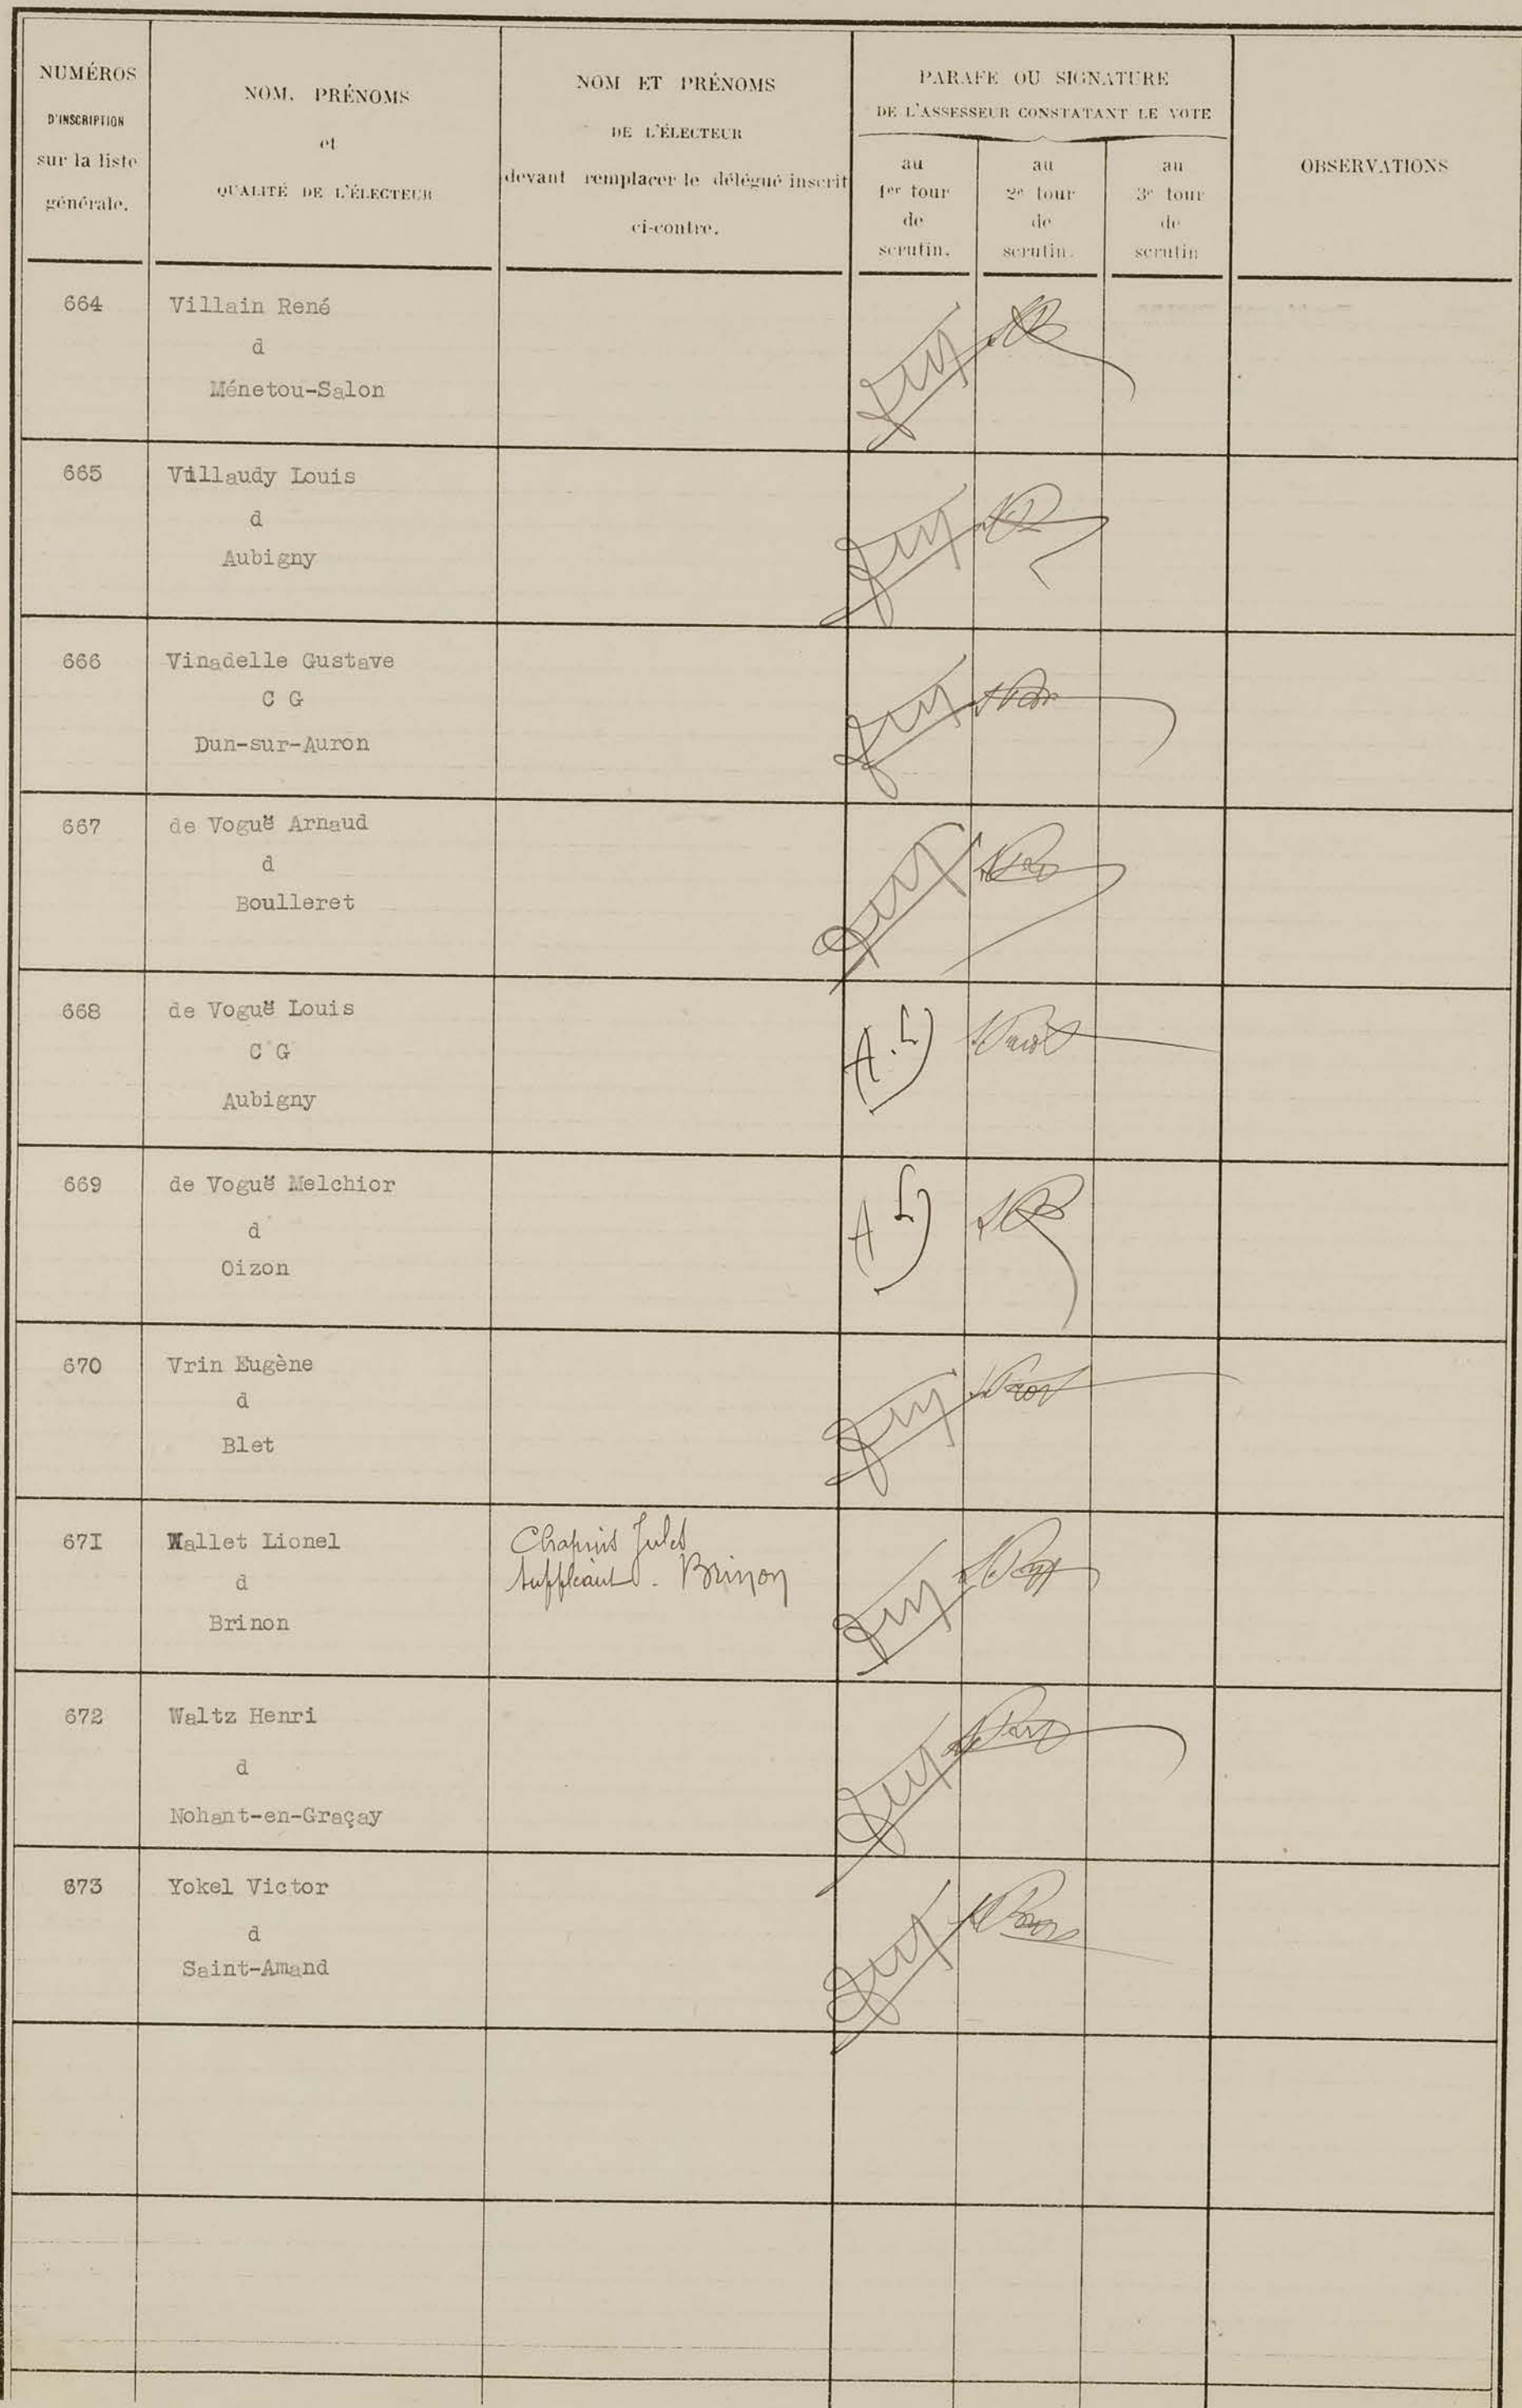 NUMÉROS
D'INSCRIPTION
sur la liste
générale.
NOM, PRÉNOMS
et
QUALITÉ DE L'ÉLECTEUR
NOM ET PRÉNOMS
DE L'ÉLECTEUR
devant remplacer le délégué inscrit
ci-contre.
PARAFE OU SIGNATURE
DE L'ASSESSEUR CONSTATANT LE VOTE
au
1er tour
de
scrutin.
au
2e tour
de
scrutin.
au
3e tour
de
scrutin
OBSERVATIONS
664
Villain René
d
Ménetou-Salon
665
Villaudy Louis
d
Aubigny
666
Vinadelle Gustave
C G
Dun-sur-Auron
667
de Voguë Arnaud
d
Boulleret
668
de Voguë Louis
C G
Aubigny
A.L
669
de Voguë Melchior
d
Oizon
A L
670
Vrin Eugène
d
Blet
67I
Wallet Lionel
d
Brinon
Chapuis Jules
suppléant. Brinon
672
Waltz Henri
d
Nohant-en-Graçay
673
Yokel Victor
d
Saint-Amand